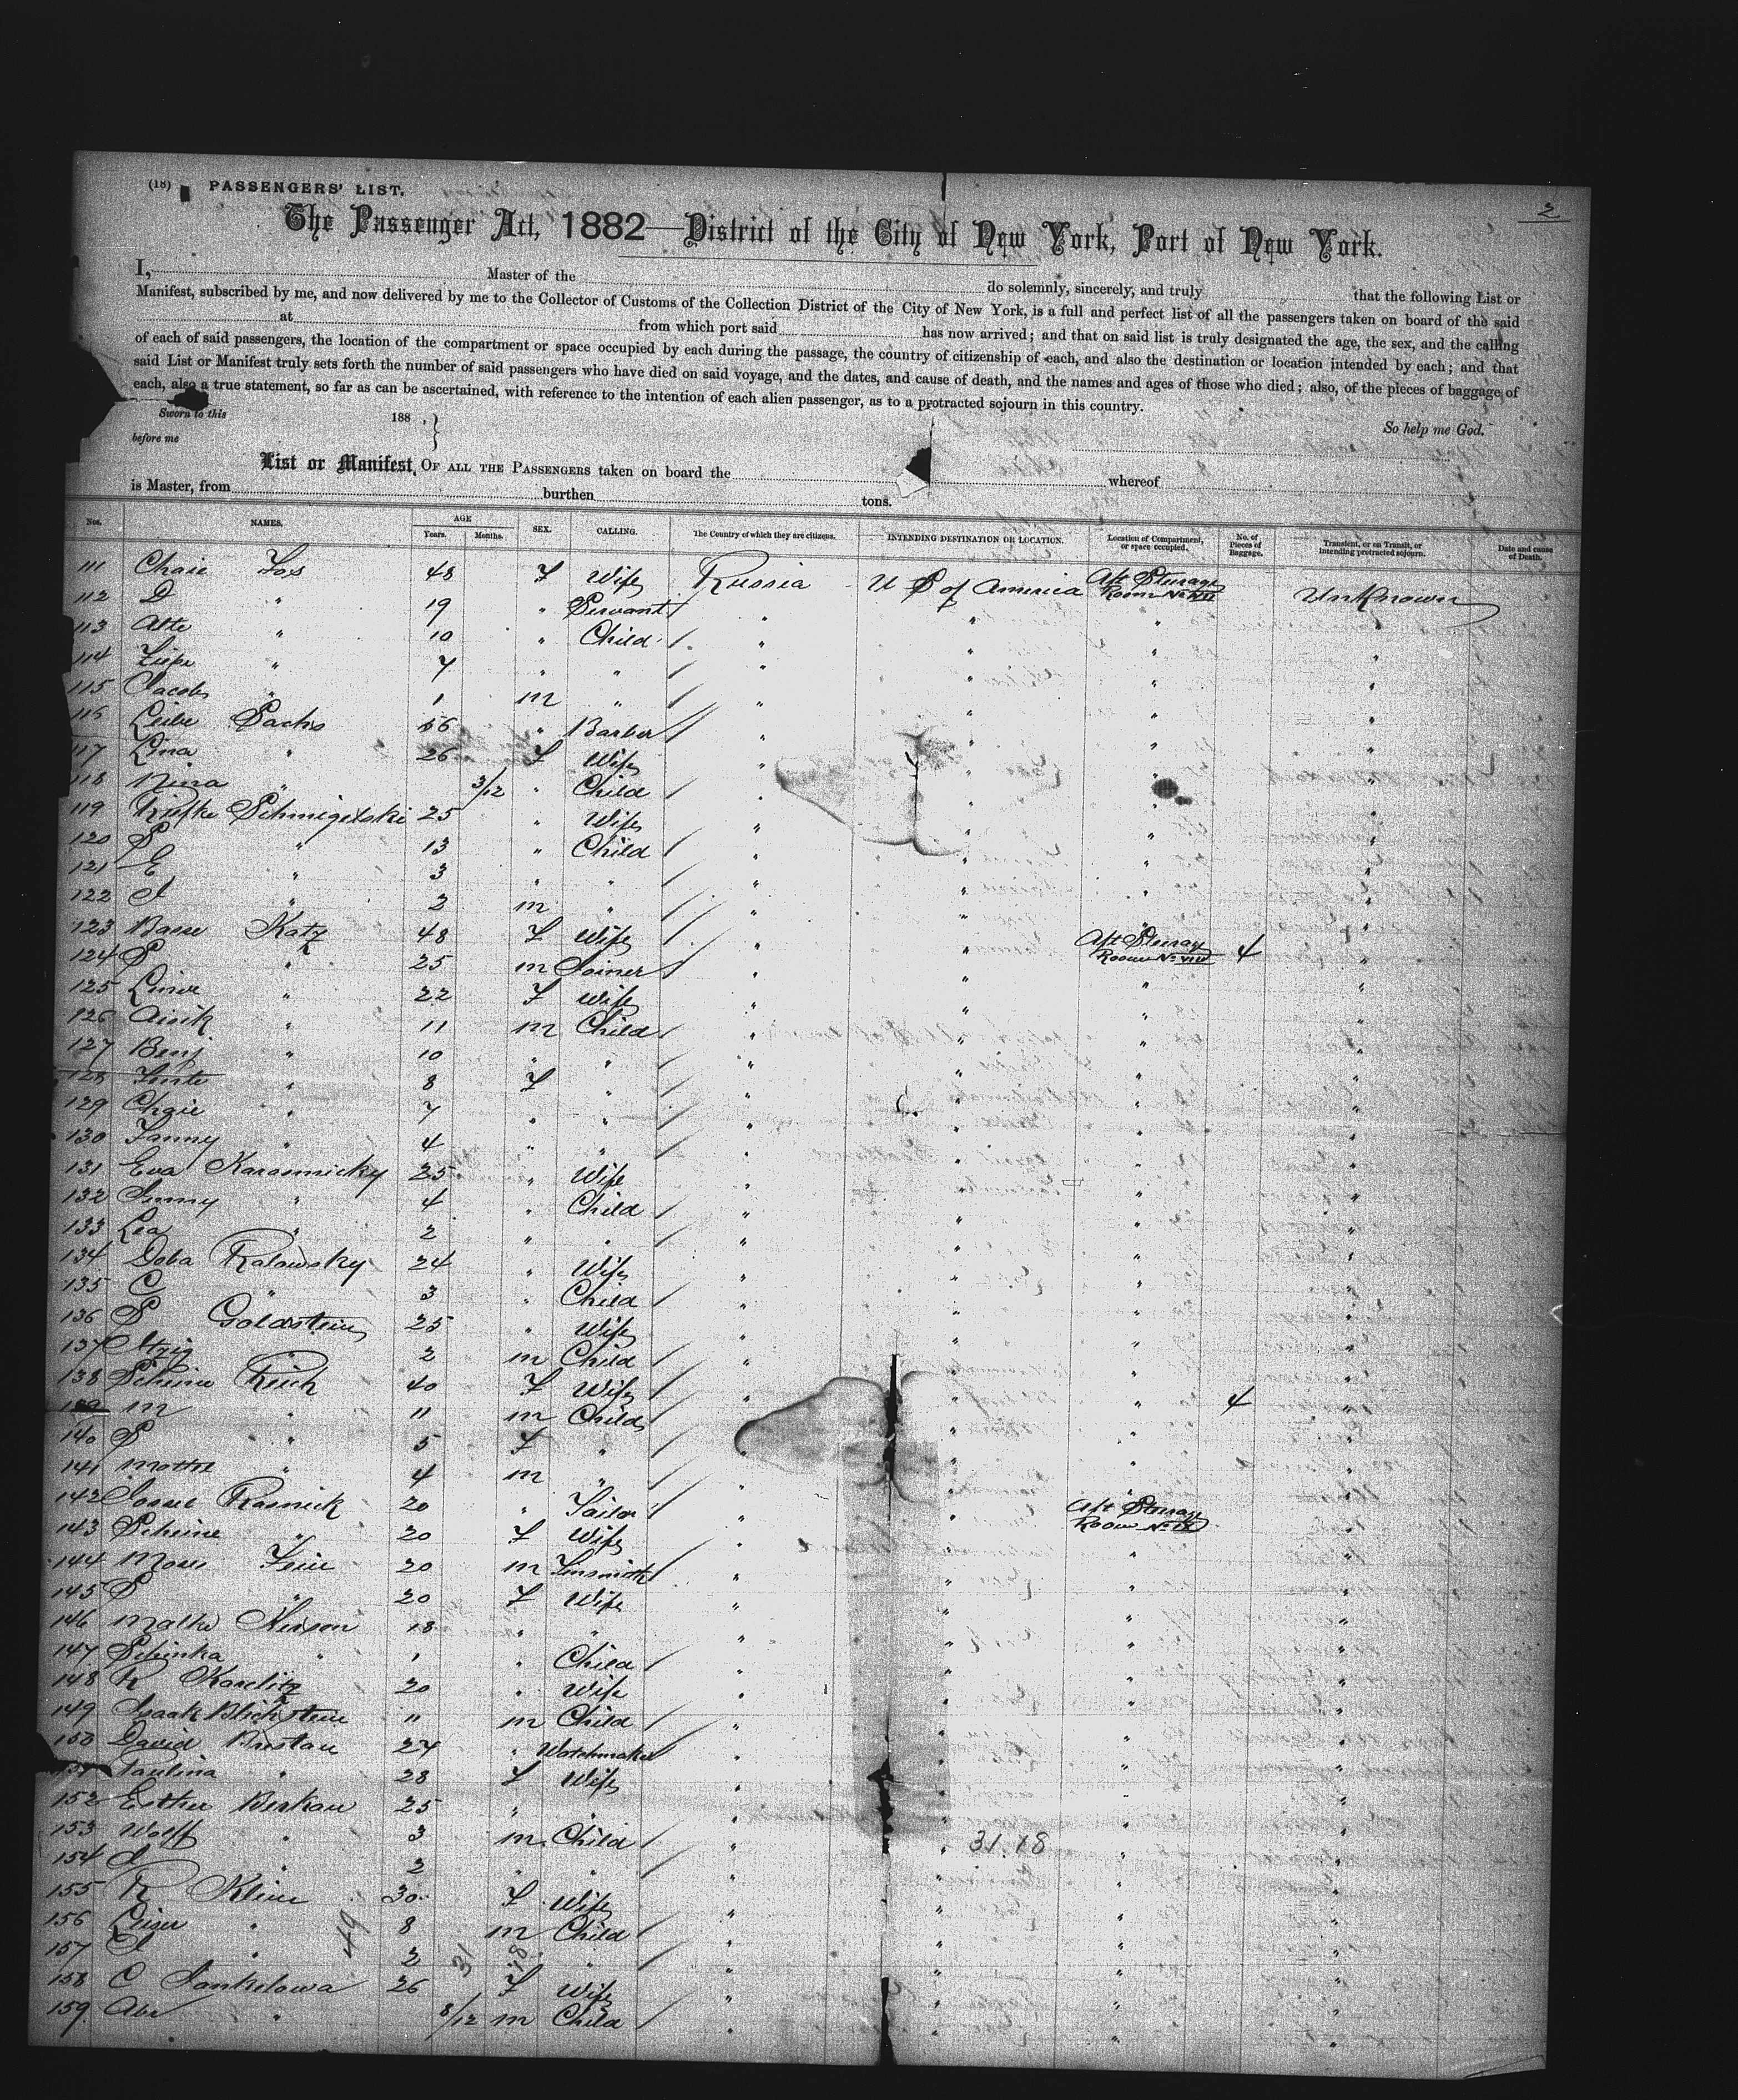 2
(18) PASSENGERS' LIST.
The Passenger Act, 1882—District of the City of New York, Port of New York.
I, Master of the do solemnly, sincerely, and truly that the following List or
Manifest, subscribed by me, and now delivered by me to the Collector of Customs of the Collection District of the City of New York, is a full and perfect list of all the passengers taken on board of the said
at from which port said has now arrived; and that on said list is truly designated the age, the sex, and the calling
of each of said passengers, the location of the compartment or space occupied by each during the passage, the country of citizenship of each, and also the destination or location intended by each; and that
said List or Manifest truly sets forth the number of said passengers who have died on said voyage, and the dates, and cause of death, and the names and ages of those who died; also, of the pieces of baggage of
each, also a true statement, so far as can be ascertained, with reference to the intention of each alien passenger, as to a protracted sojourn in this country.
Sworn to this 188 , } So help me God.
before me
List or Manifest, OF ALL THE PASSENGERS taken on board the whereof
is Master, from burthen tons.
Nos. NAMES. AGE Years. Months. SEX. CALLING. The Country of which they are citizens. INTENDING DESTINATION OR LOCATION. Location of Compartment, or space occupied. No. of Pieces of Baggage. Transient, or on Transit, or intending protracted sojourn. Date and cause of Death.
111 Chaie Fox 48 F Wife Russia U S of America Aft Steerage Room No VII Unknown
112 D " 19 " Servant " " " "
113 " 10 " Child " " " "
114 " 7 " " " " " "
115 Jacob " 1 m " " " " "
116 Leibe Sachs 56 " Barber " " " "
117 Lina " 26 F Wife " " " "
118 Nina " 3/12 " Child " " " "
119 Riefke Schmigelski 25 " Wife " " " "
120 S " 13 " Child " " " "
121 E " 3 " " " " " "
122 I " 2 m " " " " "
123 Basse Katz 48 F Wife " " Aft Steerage Room No VIII 4 "
124 S " 25 m Joiner " " " "
125 " 22 F Wife " " " "
126 Aisik " 11 m Child " " " "
127 Benj " 10 " " " " " "
128 " 8 F " " " " "
129 Chaie " 7 " " " " " "
130 Fanny " 4 " " " " " "
131 Eva Karamnicky 25 " Wife " " " "
132 " 4 " Child " " " "
133 Lea " 2 " " " " " "
134 Doba Kalowsky 24 " Wife " " " "
135 C " 3 " Child " " " "
136 S Goldstein 25 " Wife " " " "
137 Itzig " 2 m Child " " " "
138 Scheine Reich 40 F Wife " " " 4 "
139 m " 11 m Child " " " "
140 S " 5 F " " " " "
141 Mottel " 4 m " " " " "
142 Jossel Rasnick 20 " Tailor " " Aft Steerage Room No IX "
143 Scheine " 20 F Wife " " " "
144 Moses Fein 20 m Tinsmith " " " "
145 S " 20 F Wife " " " "
146 Malke 18 " " " " " "
147 Scheinka " 1 " Child " " " "
148 R Karelitz 20 " Wife " " " "
149 Isaak Blichstein 11 m Child " " " "
150 David 27 " Watchmaker " " " "
Paulina " 28 F Wife " " " "
152 Esther Berkau 25 " " " " " "
153 Wolff " 3 m Child " " " "
31.18
154 J " 2 " " " " " "
155 R Klein 30 F Wife " " " "
156 Leiser " 8 m Child " " " "
49
157 I " 2 " " " " " "
31 18
158 C Jankelowa 26 F Wife " " " "
159 Abe " 8/12 m Child " " " "